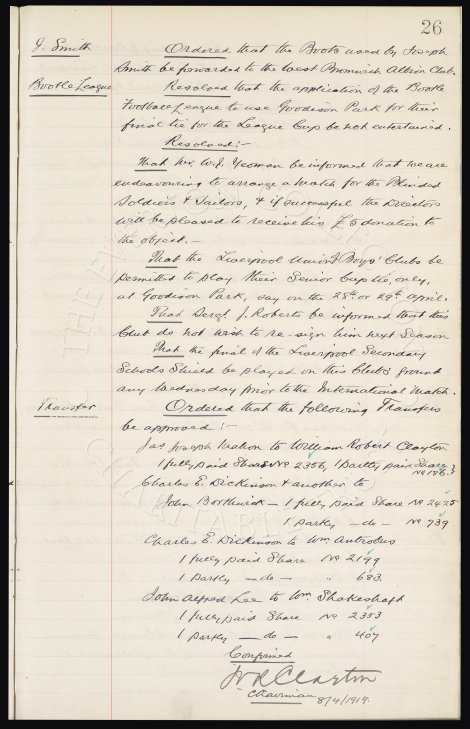 26
J. Smith Ordered that the Boots used by Joseph
Smith be forwarded to the West Bromwich Albion Club.
Bootle League Resolved that the application of the Bootle
Football League to use Goodison Park for their
final tie for the League Cup be not entertained.
Resolved:-
That Mr. W.J. Yeoman be informed that we are
endeavouring to arrange a match for the Blinded
Soldiers & Sailors, & if successful the Directors
will be pleased to receive his £5 donation to
the object.—
That the Liverpool Union of Boys' Clubs be
permitted to play their Senior Cup tie, only,
at Goodison Park, say on the 28th or 29th April.
That Sergt J. Roberts be informed that this
Club do not wish to re-sign him next Season
That the final of the Liverpool Secondary
Schools Shield be played on this Club's ground
any Wednesday prior to the International Match.
Transfer Ordered that the following Transfers
be approved:-
Jas Joseph Mahon to William Robert Clayton
1 fully paid Share No 2356, 1 partly paid Share
No 186
Charles E. Dickinson & another to
John Borthwick — 1 fully paid Share No 2425
1 partly — do — No 739
Charles E. Dickinson to Wm Antrobus
1 fully paid Share No 2199
1 partly — do — " 683
John Alfred Lee to Wm Shakeshaft
1 fully paid Share No 2353
1 partly — do — " 407
Confirmed
W R Clayton
Chairman 8/4/1919.